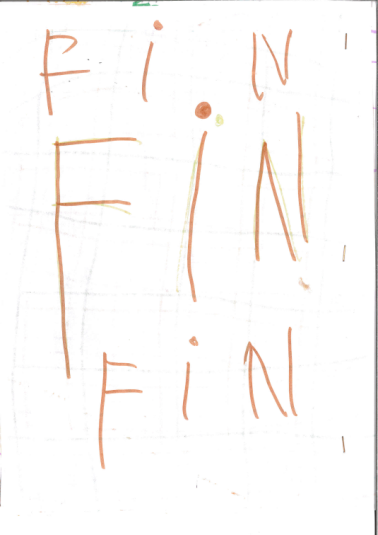 FiN
FiN
FiN